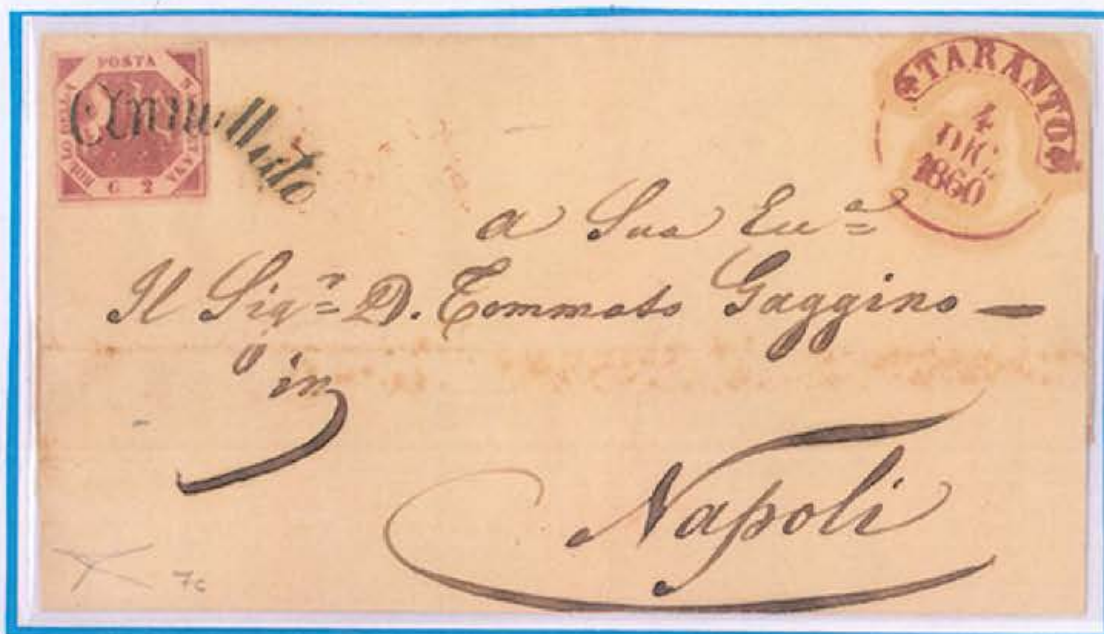 POSTA NAPOLETANA
BOLLO DELLA
G 2
Annullato
TARANTO
4
DIC.
1860
a Sua Ecc.ª
Il Sig.r D. Tommaso Gaggino
in
Napoli
7c